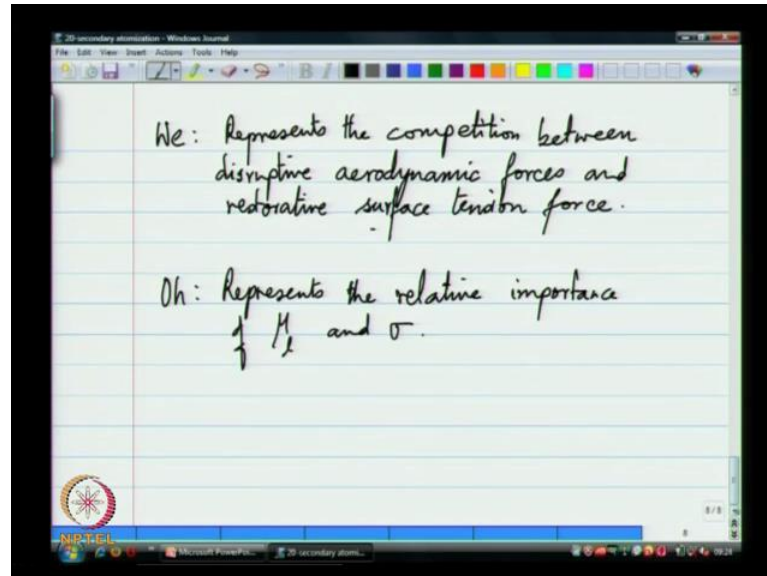 20-secondary atomization - Windows Journal
File Edit View Insert Actions Tools Help
We: Represents the competition between
disruptive aerodynamic forces and
restorative surface tension force.
Oh: Represents the relative importance
of μl and σ.
8/8
8
NPTEL
Microsoft PowerPoi...
20-secondary atomi...
09:28